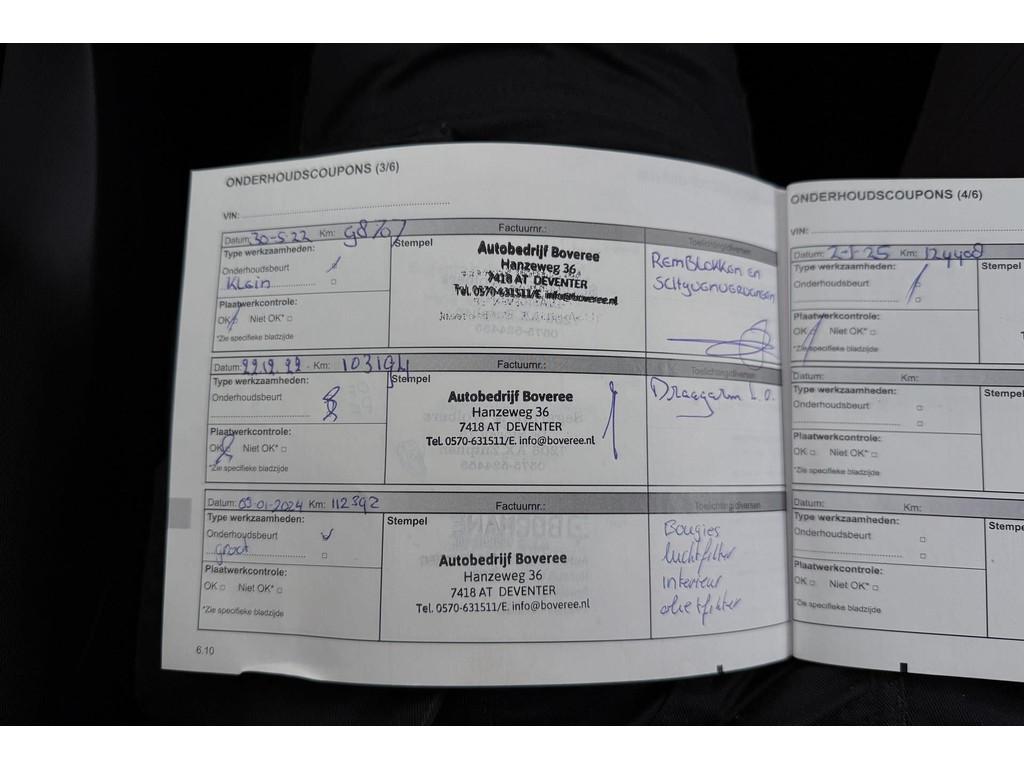 ONDERHOUDSCOUPONS (3/6)
VIN:
Datum: 30-5-22 Km: 98707 Factuurnr.:
Type werkzaamheden: Stempel Toelichting/diversen
Onderhoudsbeurt
Klein
Plaatwerkcontrole:
OK Niet OK*
*Zie specifieke bladzijde
Autobedrijf Boveree
Hanzeweg 36
7418 AT DEVENTER
Tel. 0570-631511/E. info@boveree.nl
REMBLOKKEN EN
Datum: 22.12.22 - Km: 103194 Factuurnr.:
Type werkzaamheden: Stempel Toelichting/diversen
Onderhoudsbeurt
Plaatwerkcontrole:
OK Niet OK*
*Zie specifieke bladzijde
Autobedrijf Boveree
Hanzeweg 36
7418 AT DEVENTER
Tel. 0570-631511/E. info@boveree.nl
Draagarm L.O.
Datum: 03-01-2024 Km: 112392 Factuurnr.: Toelichting/diversen
Type werkzaamheden: Stempel
Onderhoudsbeurt
groot
Plaatwerkcontrole:
OK Niet OK*
*Zie specifieke bladzijde
Autobedrijf Boveree
Hanzeweg 36
7418 AT DEVENTER
Tel. 0570-631511/E. info@boveree.nl
Bougies
luchtfilter
interieur
oliefilter
6.10
ONDERHOUDSCOUPONS (4/6)
VIN:
Datum: 2-1-25 Km: 124408
Type werkzaamheden: Stempel
Onderhoudsbeurt
Plaatwerkcontrole:
OK Niet OK*
*Zie specifieke bladzijde
Datum: Km:
Type werkzaamheden: Stempel
Onderhoudsbeurt
Plaatwerkcontrole:
OK Niet OK*
*Zie specifieke bladzijde
Datum: Km:
Type werkzaamheden: Stempe
Onderhoudsbeurt
Plaatwerkcontrole:
OK Niet OK*
*Zie specifieke bladzijde